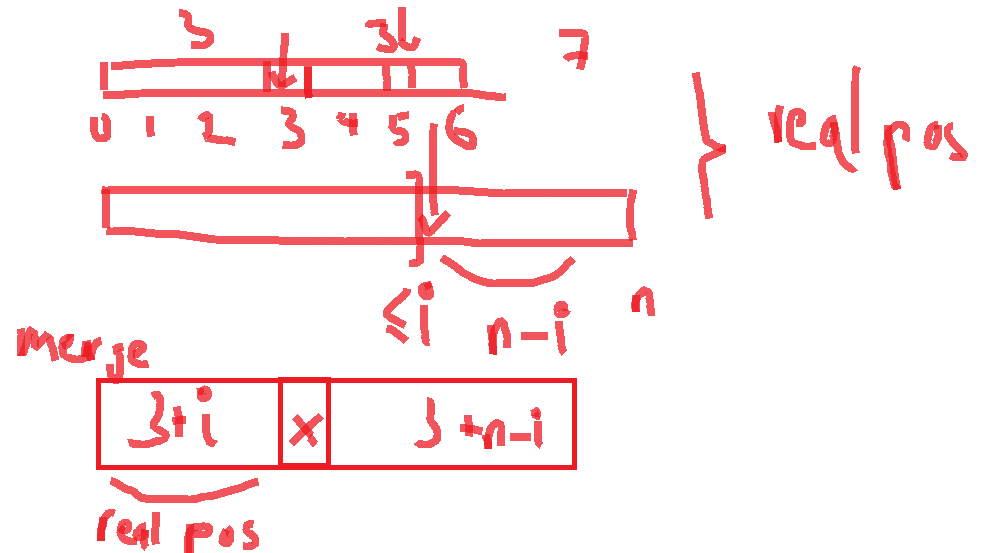 3 3L 7
0 1 2 3 4 5 6
real pos
≤i n-i n
merge
3+i x 3+n-i
real pos